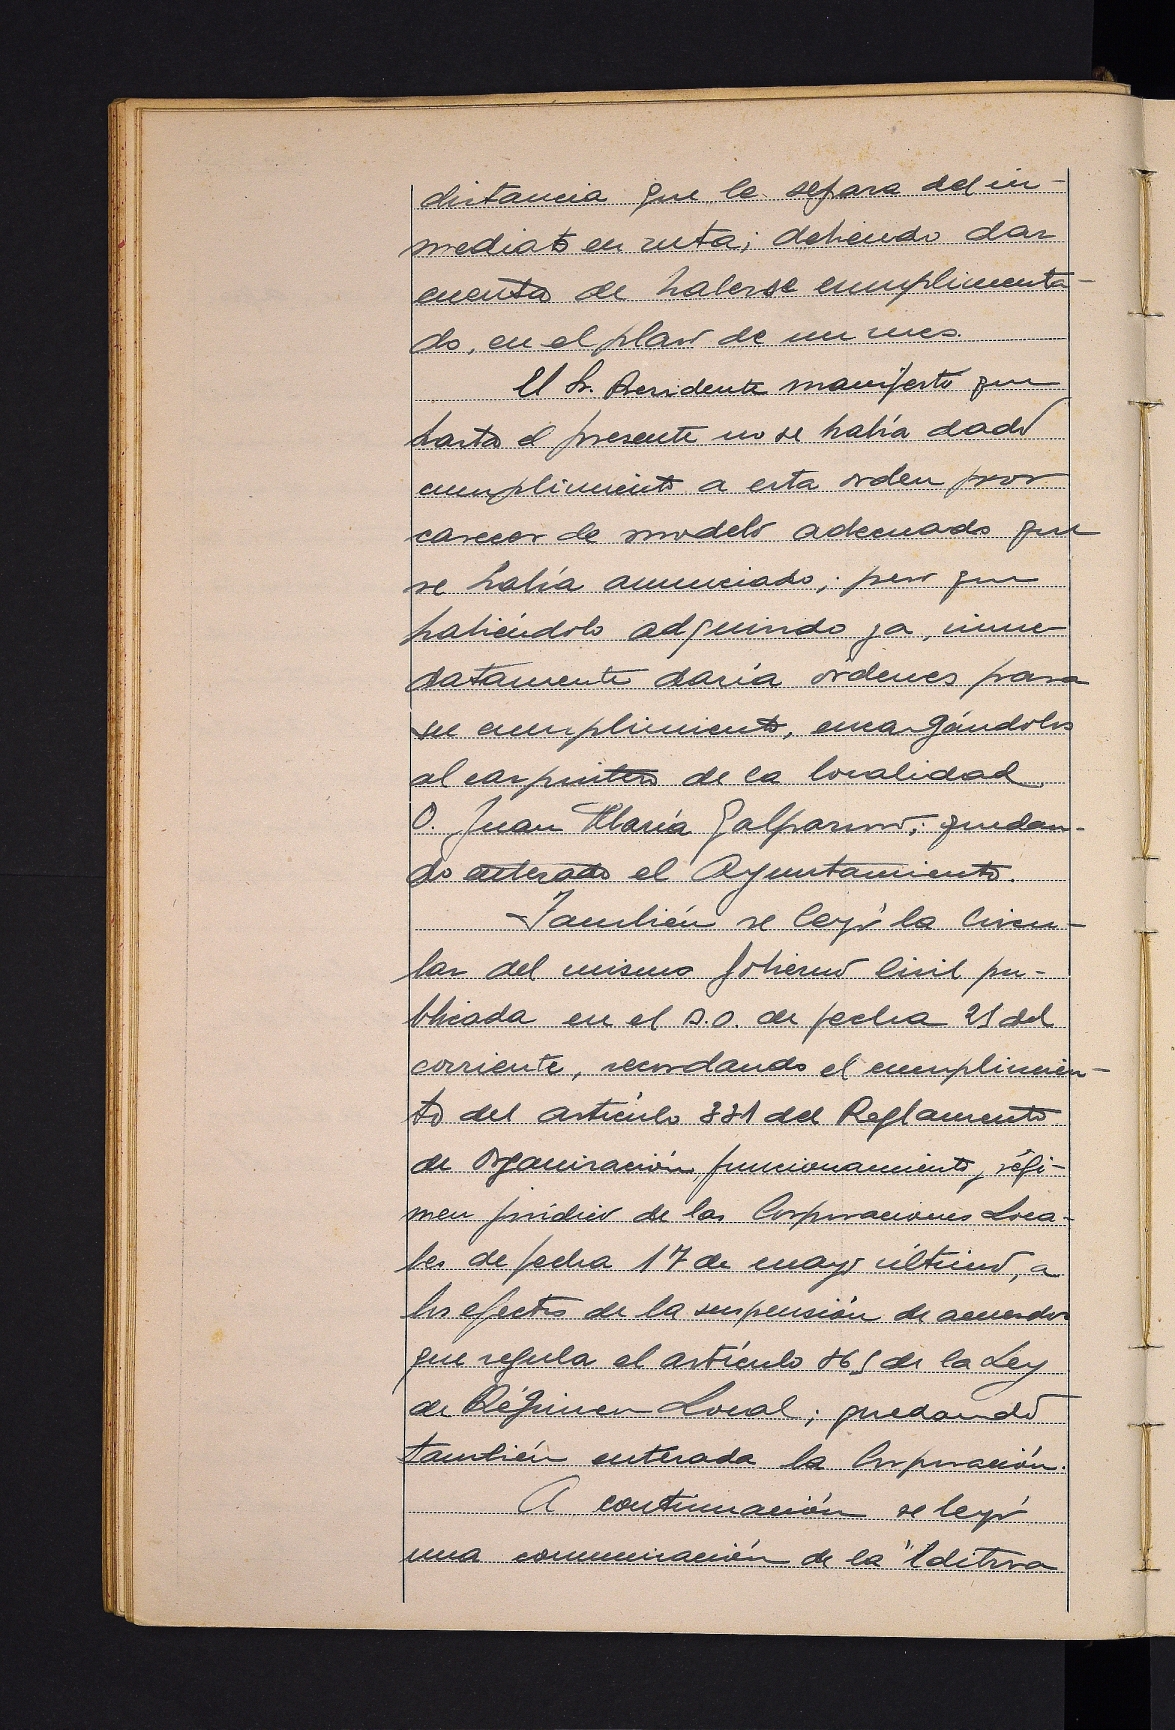 distancia que le separa del in-
mediato en ruta; debiendo dar
cuenta de haberse cumplimenta-
do, en el plazo de un mes.
El Sr. Presidente manifestó que
hasta el presente no se había dado
cumplimiento a esta orden por
carecer de modelo adecuado que
se había anunciado; pero que
habiéndolo adquirido ya, inme
datamente daría órdenes para
su cumplimiento, encargándolos
al carpintero de la localidad
D. Juan María Galparsoro; quedan-
do enterado el Ayuntamiento.
También se leyó la Circu-
lar del mismo Gobierno Civil pu-
blicada en el B.O. de fecha 21 del
corriente, recordando el cumplimien-
to del artículo 331 del Reglamento
de Organización, funcionamiento y régi-
men jurídico de las Corporaciones Loca-
les de fecha 17 de mayo último, a
los efectos de la suspensión de acuerdos
que regula el artículo 365 de la Ley
de Régimen Local; quedando
también enterada la Corporación.
A continuación se leyó
una comunicación de la "Editora